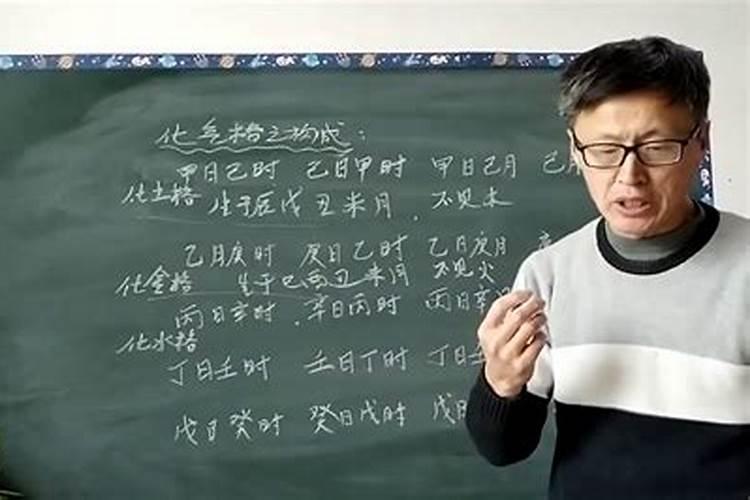 化气格之构成：
甲日己时 己日甲时 甲日己月 己
化土格 生于辰戌丑未月，不见木
乙日庚时 庚日乙时 乙日庚月
化金格 生于巳酉丑 月 不见火
丙日辛时．辛日丙时 丙日辛
化水格
丁日壬时 壬日丁时 丁日
戊日癸时 癸日戊时 戊